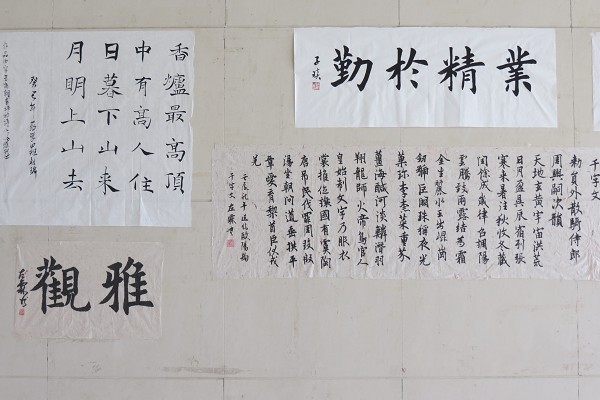 香爐最高頂
中有高人住
日暮下山来
月明上山去
業精於勤
千字文
勅員外散騎侍郎
周興嗣次韻
天地玄黃宇宙洪荒
日月盈昃辰宿列張
寒来暑往秋收冬藏
閏餘成歲律呂調陽
雲騰致雨露結為霜
金生麗水玉出崑崗
劒號巨闕珠稱夜光
菓珍李柰菜重芥
薑海醎河淡鱗潛羽
翔龍師火帝鳥官人
皇始制文字乃服衣
裳推位讓國有虞陶
唐弔民伐罪周發殷
湯坐朝問道垂拱平
章愛育黎首臣伏戎
羌
雅觀